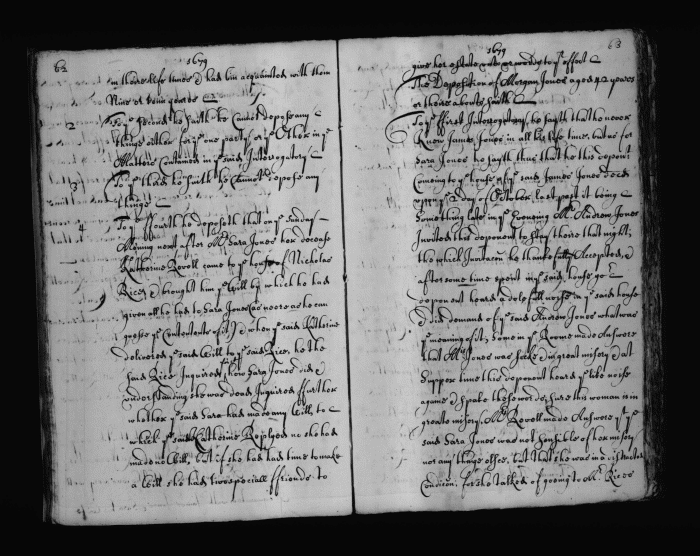 62
1679
in theire life times & had bin acquainted with them
Nine or tenn yeares
2 To ye second he saith he Cannot depose any
thinge either for ye one party or ye other in ye
Matters Contained in ye said Interrogatory
3 To ye third he saith he Cannot depose any
thinge
4 To ye ffourth he deposeth that on ye Sunday
Morning next after Mrs Sara Jones her decease
Katherine Revell came to ye house of Nicholas
Rice & brought him ye Will by which he had
given all he had to Sara Jones as neere as he can
ye Contents of it & when ye said Katherine
delivered ye said Will to ye said Rice, he the
said Rice Inquired how Sara Jones did &
understanding she was dead Inquired ffurther
whether ye said Sara had made any Will, to
which ye said Katherine Replyed no she had
made no Will, but if she had had time to make
a Will she had two speciall ffriends to
63
1679
give her estate to or words to ye effect
The Deposition of Morgan Jones aged 42 yeares
or there abouts saith
To ye ffirst Interrogatory he sayth that he never
Knew James Jones in all his life time, but as for
Sara Jones he sayth thus that he this deponent
Comeing to ye house of ye said James Jones decd
ye 2 day of October last past it being
Something late in ye Evening Mr Andrew Jones
Invited this deponent to stay there that night,
the which Invitacon he thankfully Accepted, &
after some time spent in ye said house ye
deponent heard a dolefull noise in ye said house
& did demand of ye said Andrew Jones what was
ye meaning of it, Some in ye Roome made Answere
that Mrs Jones was sicke & in great misery & at
Supper time this deponent heard ye like noise
againe & spake these words, sure this woman is in
greate misery, Mr Revell made Answere yt ye
said Sara Jones was not sensible of her misery
nor any thinge else, but that she was in a distracted
Condicon, for she talked of goeing to Mr Rices